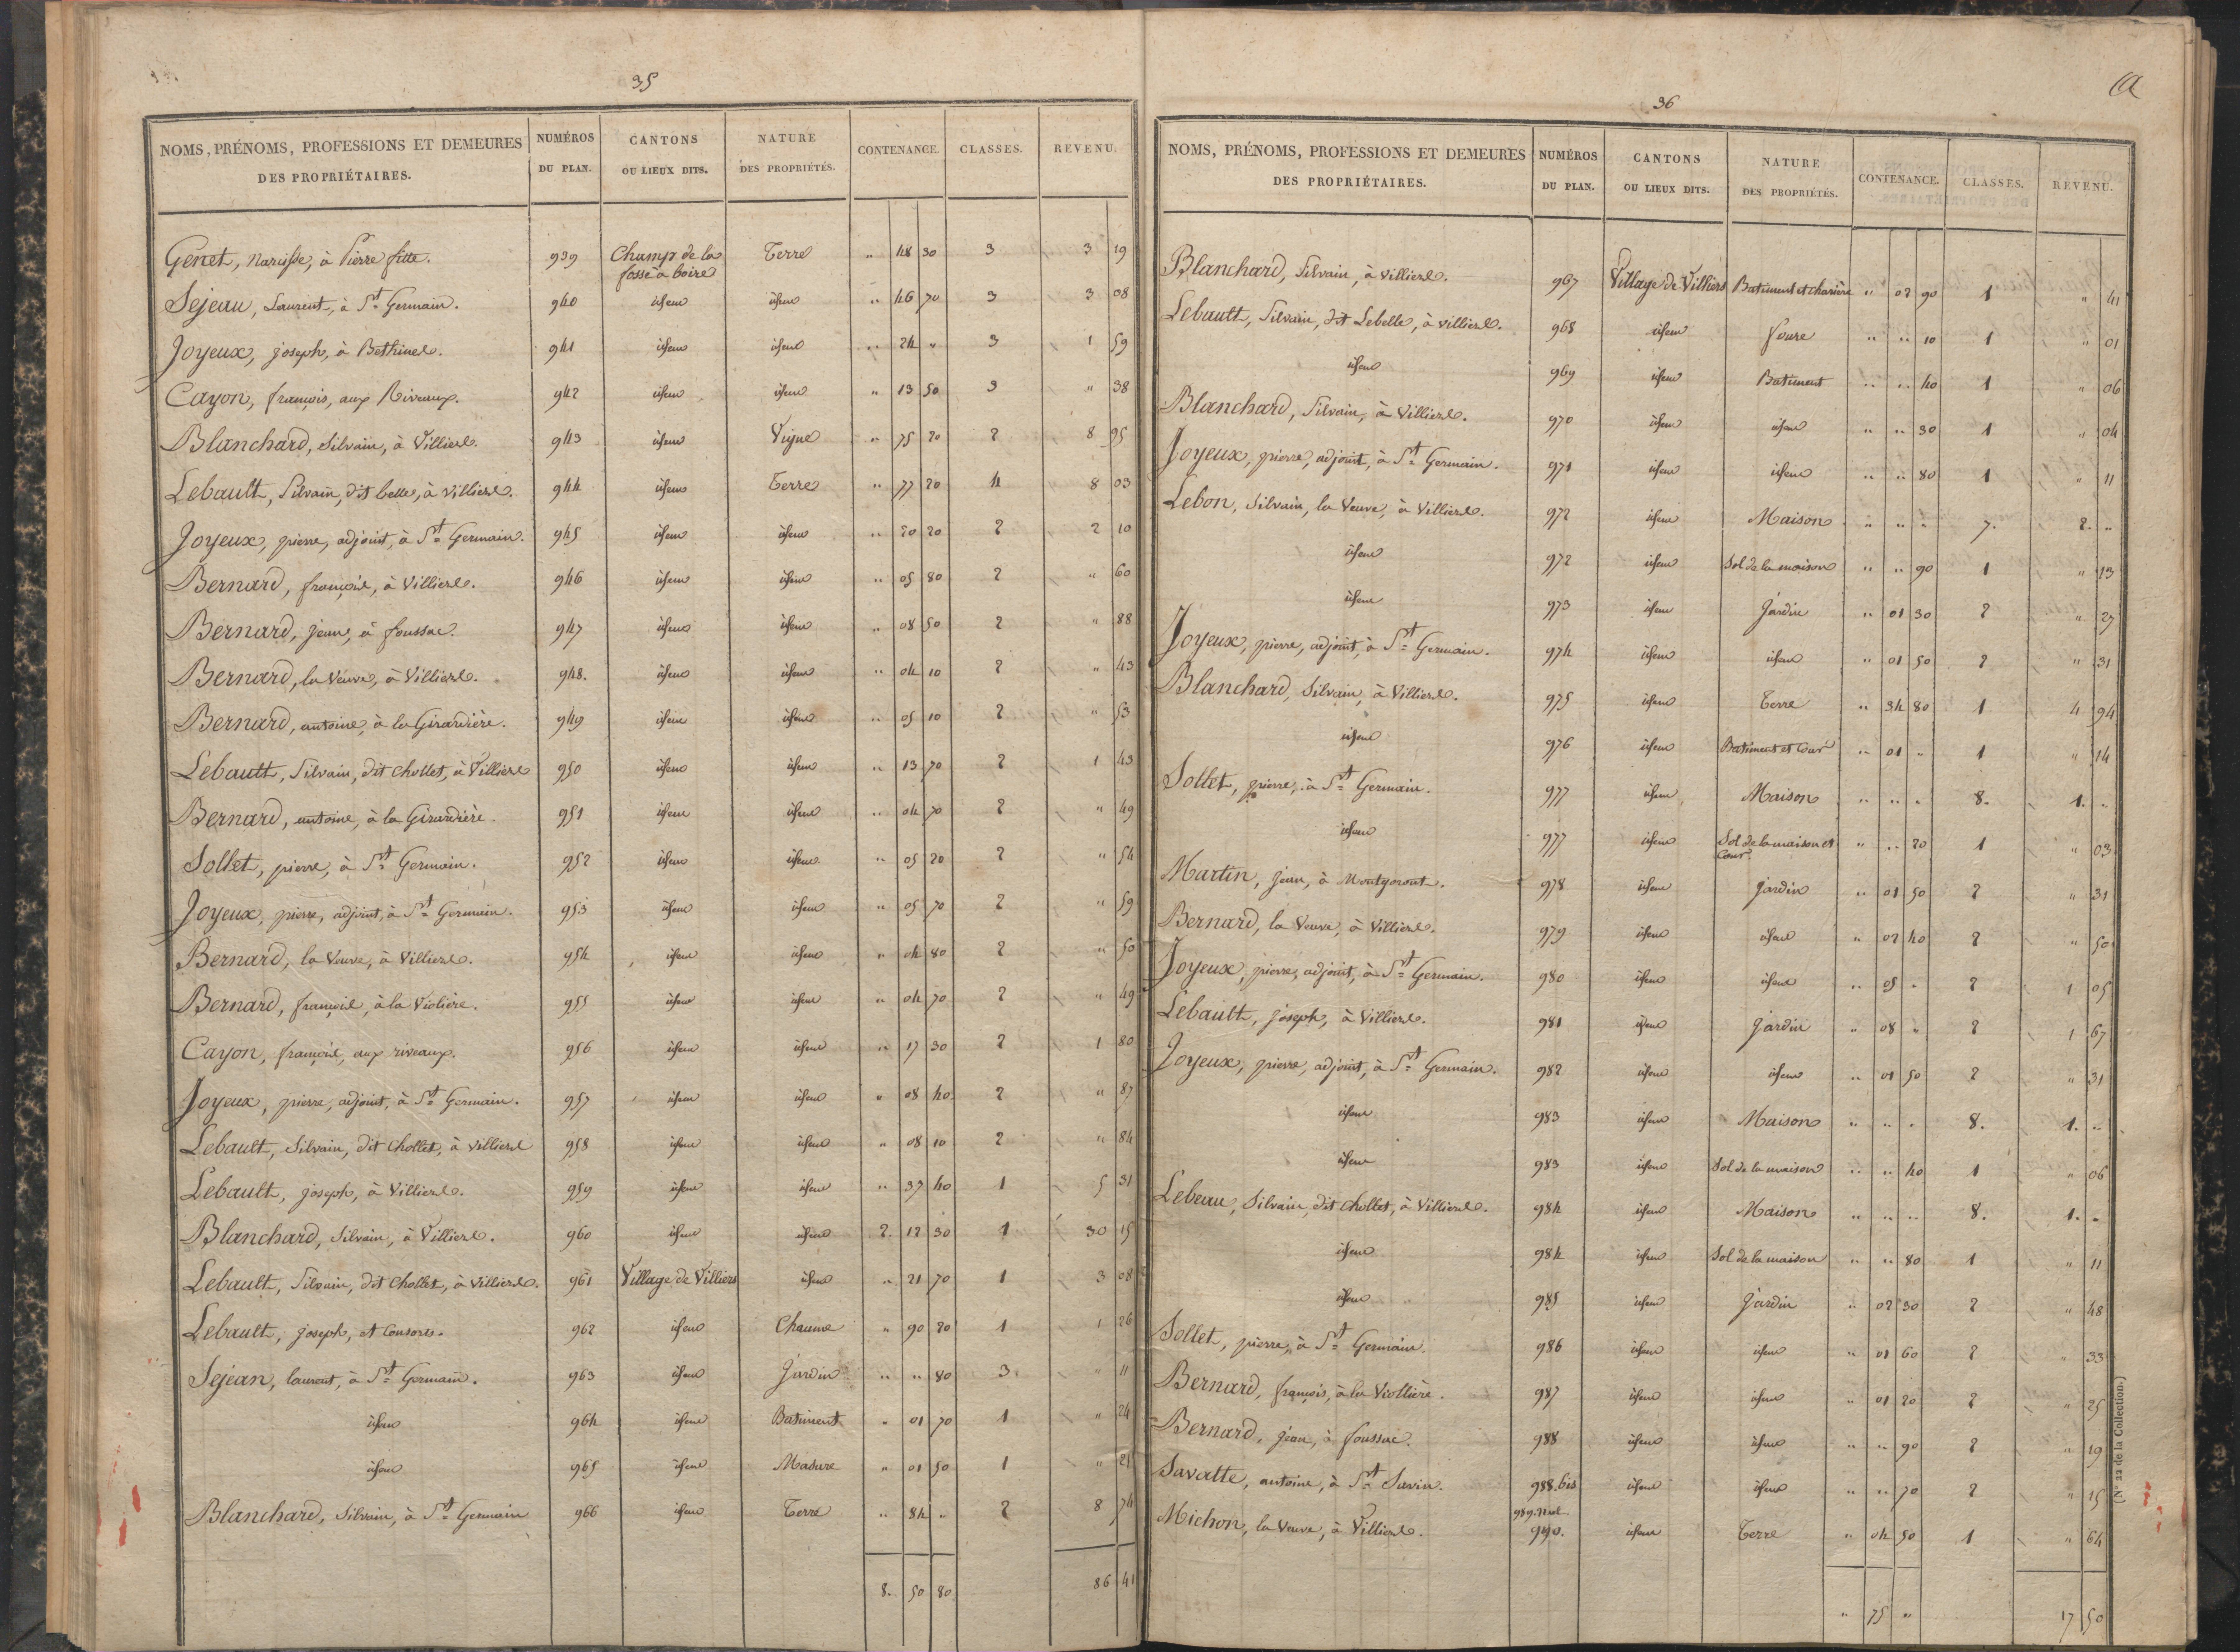 35
NOMS, PRÉNOMS, PROFESSIONS ET DEMEURES DES PROPRIÉTAIRES. | NUMÉROS DU PLAN. | CANTONS OU LIEUX DITS. | NATURE DES PROPRIÉTÉS. | CONTENANCE. | CLASSES. | REVENU.
Genet, Narcisse, à Pierre fitte. 939 Champ de la fosse à boire Terre " 48 30 3 3 19
Sejeau, Laurent, à St Germain. 940 idem idem " 46 70 3 3 08
Joyeux, joseph, à Bethines. 941 idem idem " 24 " 3 1 59
Cayon, françois, aux Riveaux. 942 idem idem " 13 50 3 " 38
Blanchard, Silvain, à Villiers. 943 idem Vigne " 75 20 2 8 95
Lebault, Silvain, dit belle, à Villiers. 944 idem Terre " 77 20 4 8 03
Joyeux, pierre, adjoint, à St Germain. 945 idem idem " 20 20 2 2 10
Bernard, françois, à Villiers. 946 idem idem " 05 80 2 " 60
Bernard, jean, à foussac. 947 idem idem " 08 50 2 " 88
Bernard, la Veuve, à Villiers. 948. idem idem " 04 10 2 " 43
Bernard, antoine, à la Girardière. 949 idem idem " 05 10 2 " 53
Lebault, Silvain, dit Chollet, à Villiers 950 idem idem " 13 70 2 1 43
Bernard, antoine, à la Girardière. 951 idem idem " 04 70 2 " 49
Sollet, pierre, à St Germain. 952 idem idem " 05 20 2 " 54
Joyeux, pierre, adjoint, à St Germain. 953 idem idem " 05 70 2 " 59
Bernard, la Veuve, à Villiers. 954 idem idem " 04 80 2 " 50
Bernard, françois, à la Violière. 955 idem idem " 04 70 2 " 49
Cayon, françois, aux riveaux. 956 idem idem " 17 30 2 1 80
Joyeux, pierre, adjoint, à St Germain. 957 idem idem " 08 40 2 " 87
Lebault, Silvain, dit Chollet, à Villiers 958 idem idem " 08 10 2 " 84
Lebault, joseph, à Villiers. 959 idem idem " 37 40 1 5 31
Blanchard, Silvain, à Villiers. 960 idem idem 2. 12 30 1 30 15
Lebault, Silvain, dit Chollet, à Villiers. 961 Village de Villiers idem " 21 70 1 3 08
Lebault, joseph, et Consors. 962 idem Chaume " 90 20 1 1 26
Sejean, laurent, à St Germain. 963 idem Jardin " " 80 3 " 11
idem 964 idem Batiment " 01 70 1 " 24
idem 965 idem Masure " 01 50 1 " 21
Blanchard, Silvain, à St Germain 966 idem Terre " 84 " 2 8 74
8. 50 80 86 41
36
NOMS, PRÉNOMS, PROFESSIONS ET DEMEURES DES PROPRIÉTAIRES. | NUMÉROS DU PLAN. | CANTONS OU LIEUX DITS. | NATURE DES PROPRIÉTÉS. | CONTENANCE. | CLASSES. | REVENU.
Blanchard, Silvain, à Villiers. 967 Village de Villiers Batiment et charière " 02 90 1 " 41
Lebault, Silvain, dit Lebelle, à Villiers. 968 idem foure " " 10 1 " 01
idem 969 idem Batiment " " 40 1 " 06
Blanchard, Silvain, à Villiers. 970 idem idem " " 30 1 " 04
Joyeux, pierre, adjoint, à St Germain. 971 idem idem " " 80 1 " 11
Lebon, Silvain, la Veuve, à Villiers. 972 idem Maison " " " 7. 2. "
idem 972 idem Sol de la maison " " 90 1 " 13
idem 973 idem Jardin " 01 30 2 " 27
Joyeux, pierre, adjoint, à St Germain. 974 idem idem " 01 50 2 " 31
Blanchard, Silvain, à Villiers. 975 idem Terre " 34 80 1 4 94
idem 976 idem Batiment et Cour " 01 " 1 " 14
Sollet, pierre, à St Germain. 977 idem Maison " " " 8. 1. "
idem 977 idem Sol de la maison et Cour. " " 20 1 " 03
Martin, Jean, à Montgoront. 978 idem Jardin " 01 50 2 " 31
Bernard, la Veuve, à Villiers. 979 idem idem " 02 40 2 " 50
Joyeux, pierre, adjoint, à St Germain. 980 idem idem " 05 " 2 1 05
Lebault, joseph, à Villiers. 981 idem Jardin " 08 " 2 1 67
Joyeux, pierre, adjoint, à St Germain. 982 idem idem " 01 50 2 " 31
idem 983 idem Maison " " " 8. 1. "
idem 983 idem Sol de la maison " " 40 1 " 06
Lebeau, Silvain, dit Chollet, à Villiers. 984 idem Maison " " " 8. 1. "
idem 984 idem Sol de la maison " " 80 1 " 11
idem 985 idem Jardin " 02 30 2 " 48
Sollet, pierre, à St Germain. 986 idem idem " 01 60 2 " 33
Bernard, françois, à la Viollière. 987 idem idem " 01 20 2 " 25
Bernard, jean, à foussac. 988 idem idem " " 90 2 " 19
Savatte, antoine, à St Savin. 988.bis idem idem " " 70 2 " 15
989.nul
Michon, la Veuve, à Villiers. 990. idem Terre " 04 50 1 " 64
" 75 " 17 50
(N° 22 de la Collection.)